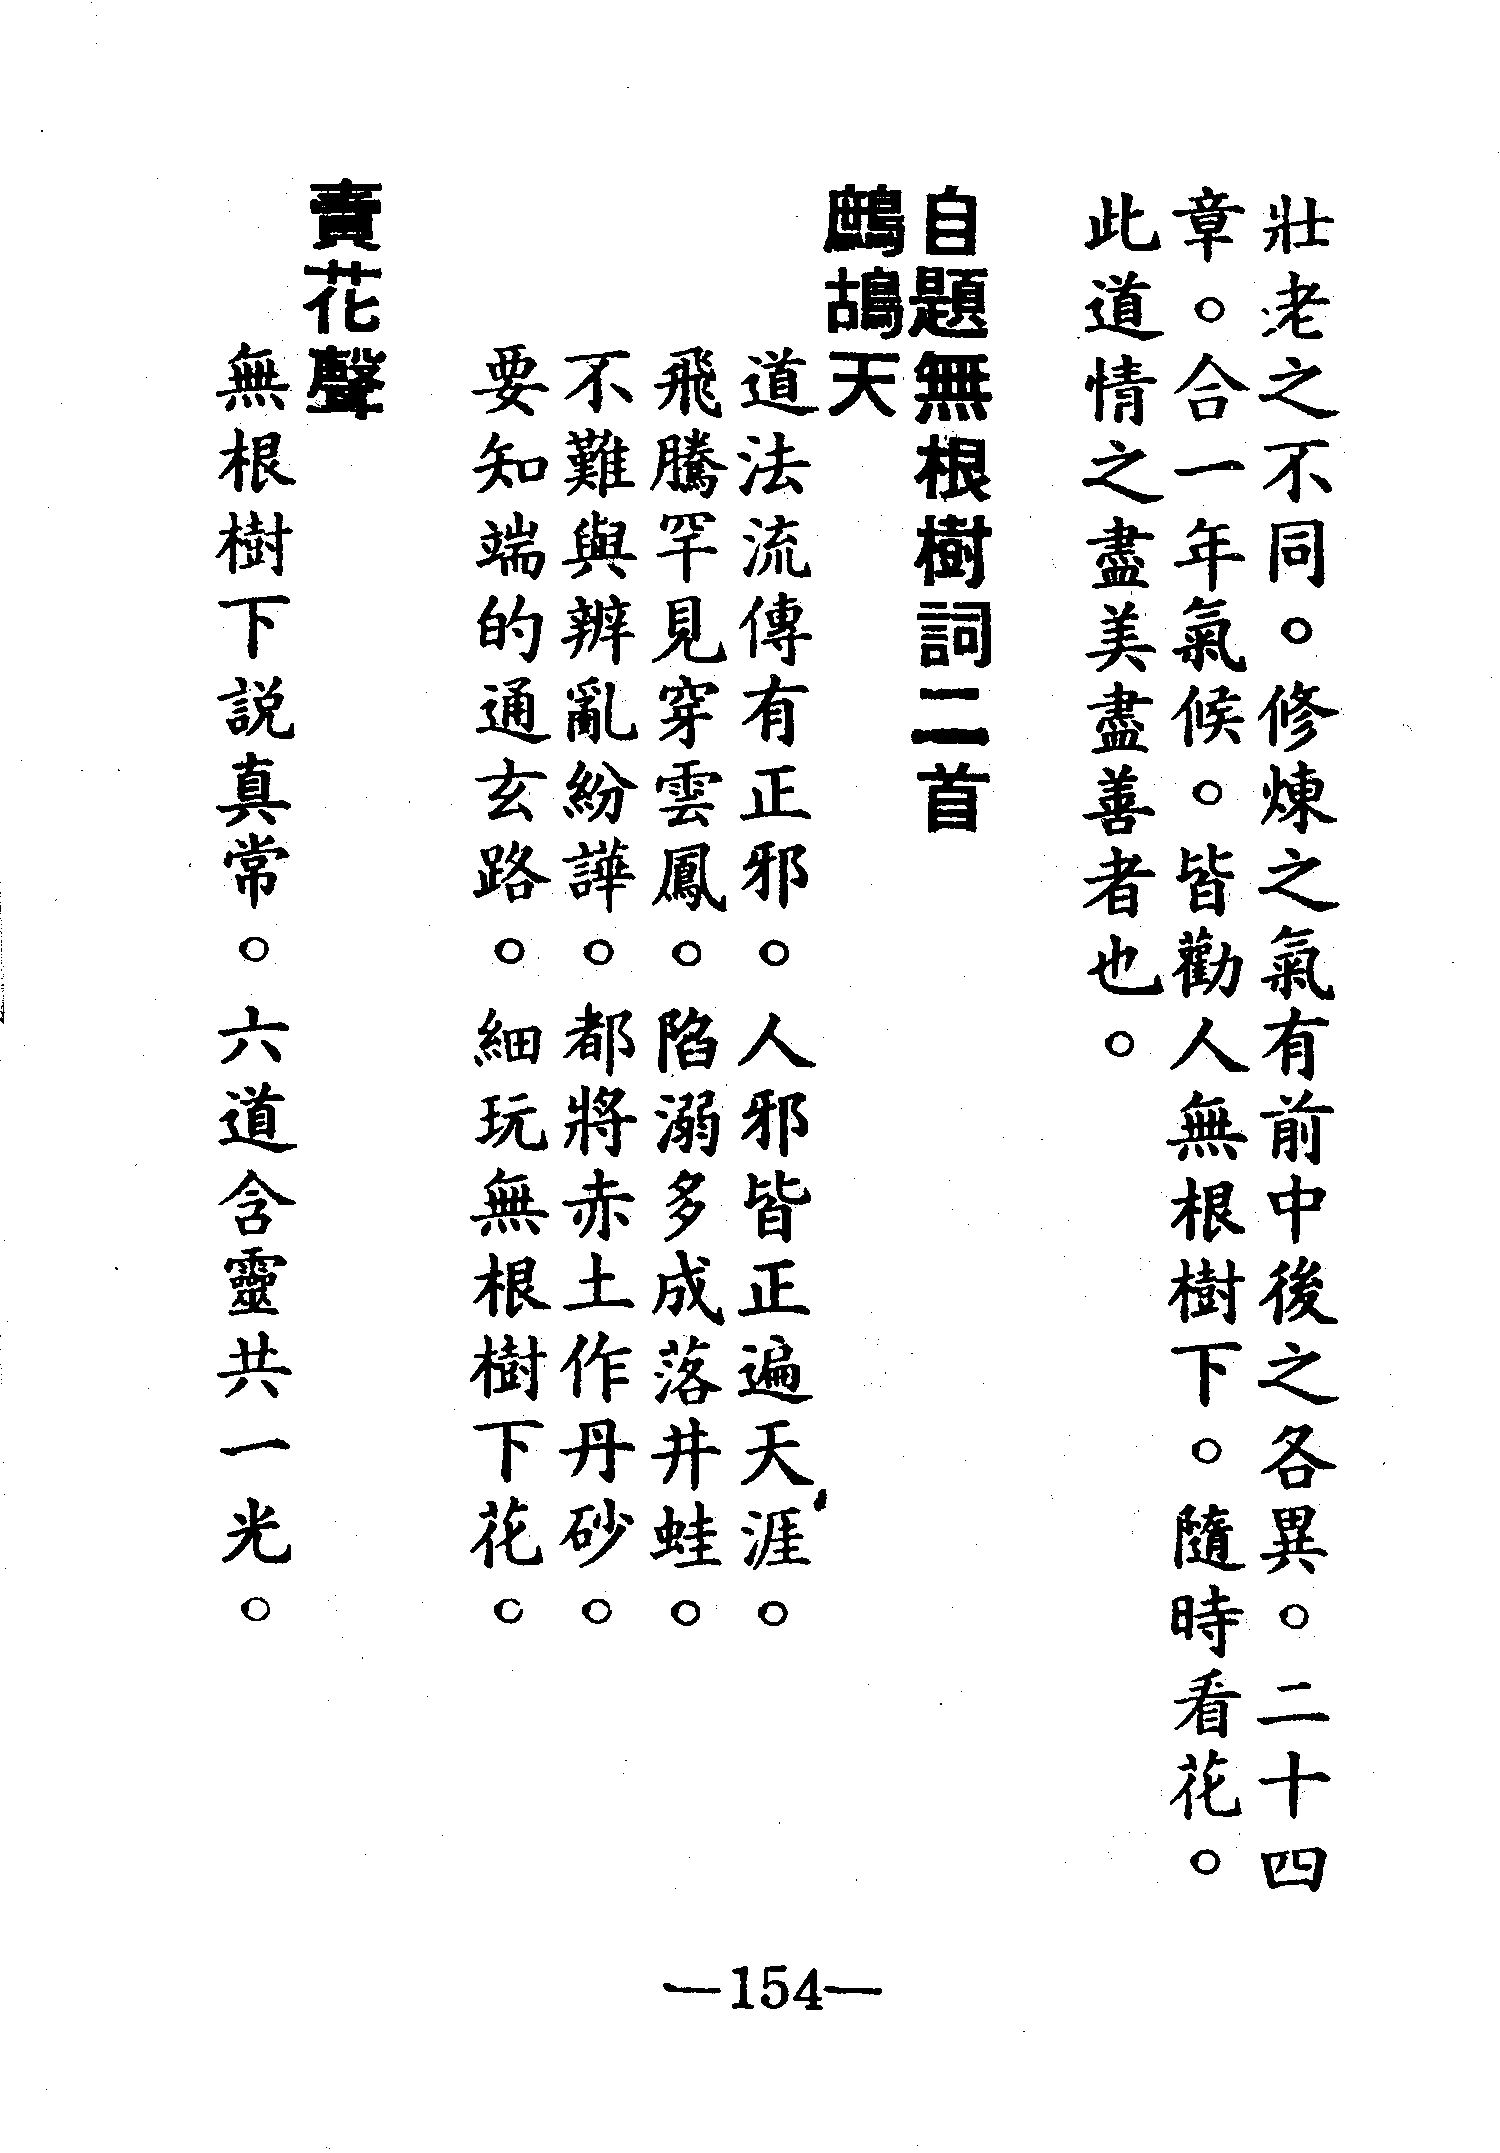 壯老之不同。修煉之氣有前中後之各異。二十四
章。合一年氣候。皆勸人無根樹下。隨時看花。
此道情之盡美盡善者也。
自題無根樹詞二首
鷓鴣天
道法流傳有正邪。人邪皆正遍天涯。
飛騰罕見穿雲鳳。陷溺多成落井蛙。
不難與辨亂紛譁。都將赤土作丹砂。
要知端的通玄路。細玩無根樹下花。
賣花聲
無根樹下説真常。六道含靈共一光。
—154—